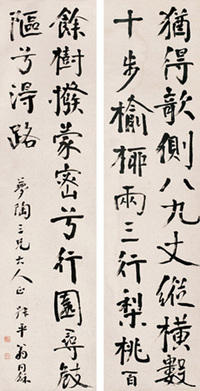 猶得欹側八九丈縱橫數
十步榆柳兩三行梨桃百
餘樹撥蒙密兮行園尋敧
兮得路
夢陶三兄大人正 叔平翁同龢